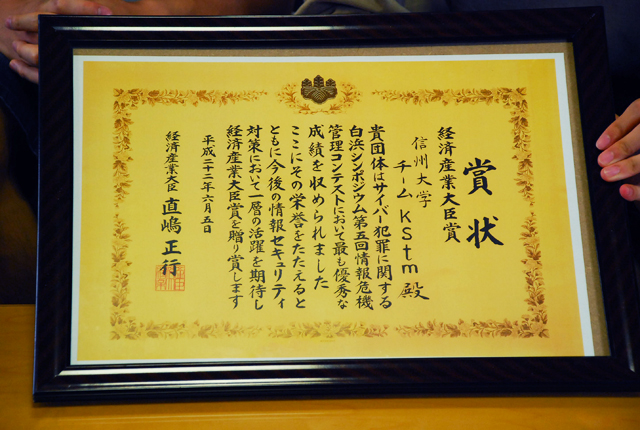 賞状
経済産業大臣賞
信州大学
チームkstm殿
貴団体はサイバー犯罪に関する
白浜シンポジウム第五回情報危機
管理コンテストにおいて最も優秀な
成績を収められました
ここにその栄誉をたたえると
ともに今後の情報セキュリティ
対策において一層の活躍を期待し
経済産業大臣賞を贈り賞します
平成二十二年六月五日
経済産業大臣 直嶋正行